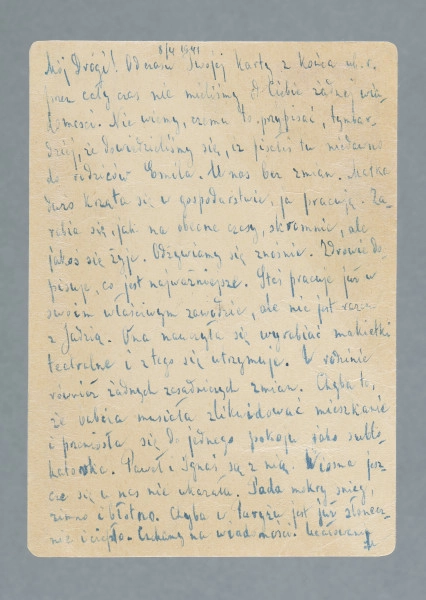 8/4 1941
Mój Drogi! Od czasu Twojej karty z końca ub. r.
przez cały czas nie mieliśmy od Ciebie żadnej wia-
domości. Nie wiemy, czemu to przypisać, tymbar-
dziej, że dowiedzieliśmy się, iż pisałeś tu niedawno
do rodziców Emila. U nas bez zmian. Matka
dużo krząta się w gospodarstwie, ja pracuję. Za-
rabia się, jak na obecne czasy, skromnie, ale
jakoś się żyje. Odżywiamy się znośnie. Zdrowie do
pisuje, co jest najważniejsze. Stef pracuje już w
swoim właściwym zawodzie, ale nie jest razem
z Jadzią. Ona nauczyła się wyrabiać makietki
teatralne i z tego się utrzymuje. W rodzinie
również żadnych zasadniczych zmian. Chyba to,
że babcia musiała zlikwidować mieszkanie
i przeniosła się do jednego pokoju jako sublo-
katorka. Paweł i Ignaś są z nią. Wiosna jesz-
cze się u nas nie ukazała. Pada mokry śnieg,
zimno i błotno. Chyba w Paryżu jest już słonecz-
nie i ciepło. Czekamy na wiadomości. Ucałowany